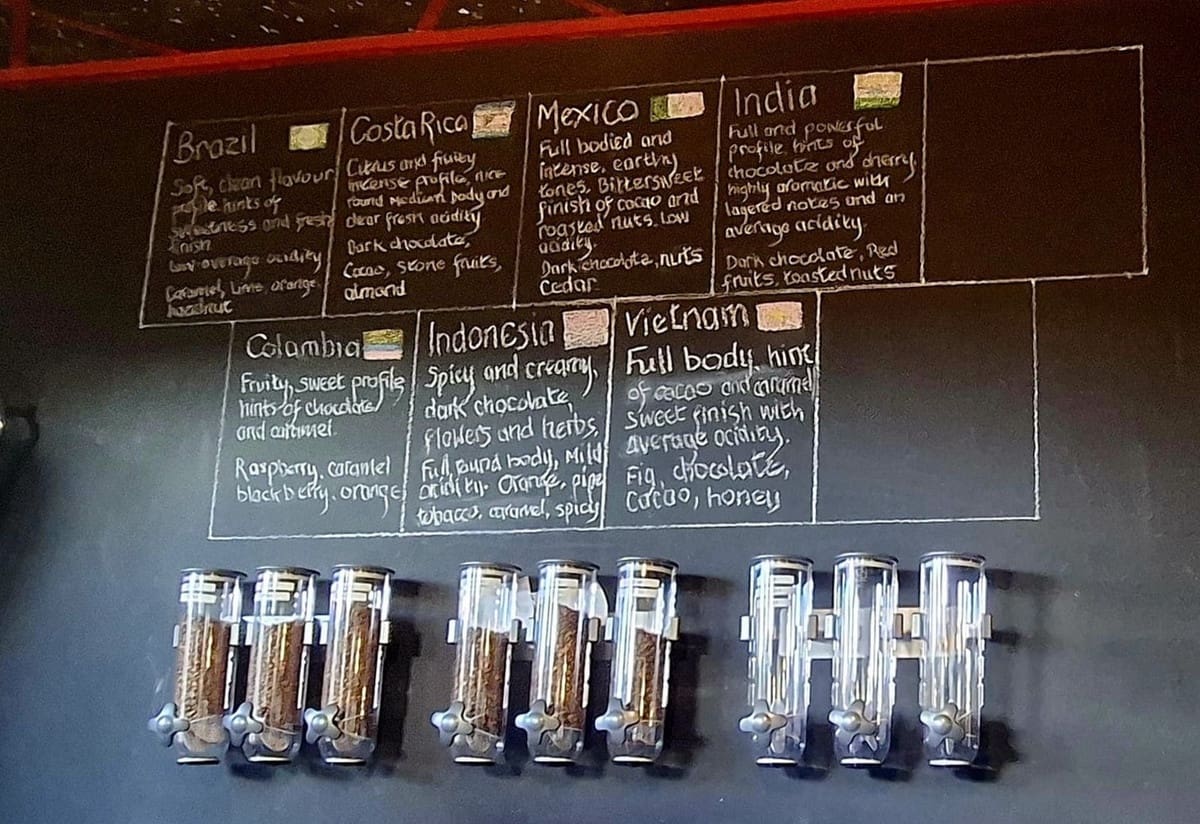 Brazil
Soft, clean flavour
profile hints of
sweetness and fresh
finish
low-average acidity
Caramel, Lime, orange,
hazelnut
Costa Rica
Citrus and fruity
intense profile, nice
round medium body and
clear fresh acidity
Dark chocolate,
Cacao, stone fruits,
almond
Mexico
Full bodied and
intense, earthy
tones. Bittersweet
finish of cacao and
roasted nuts. Low
acidity.
Dark chocolate, nuts
Cedar
India
Full and powerful
profile, hints of
chocolate and cherry,
highly aromatic with
layered notes and an
average acidity.
Dark chocolate, Red
fruits, toasted nuts
Colambia
Fruity, sweet profile,
hints of chocolate
and caramel.
Raspberry, caramel
blackberry, orange
Indonesia
Spicy and creamy,
dark chocolate,
flowers and herbs
Full round body, Mild
acidity. Orange, pipe
tobacco, caramel, spicy
Vietnam
Full body, hint
of cacao and caramel
sweet finish with
average acidity.
Fig, chocolate,
Cacao, honey